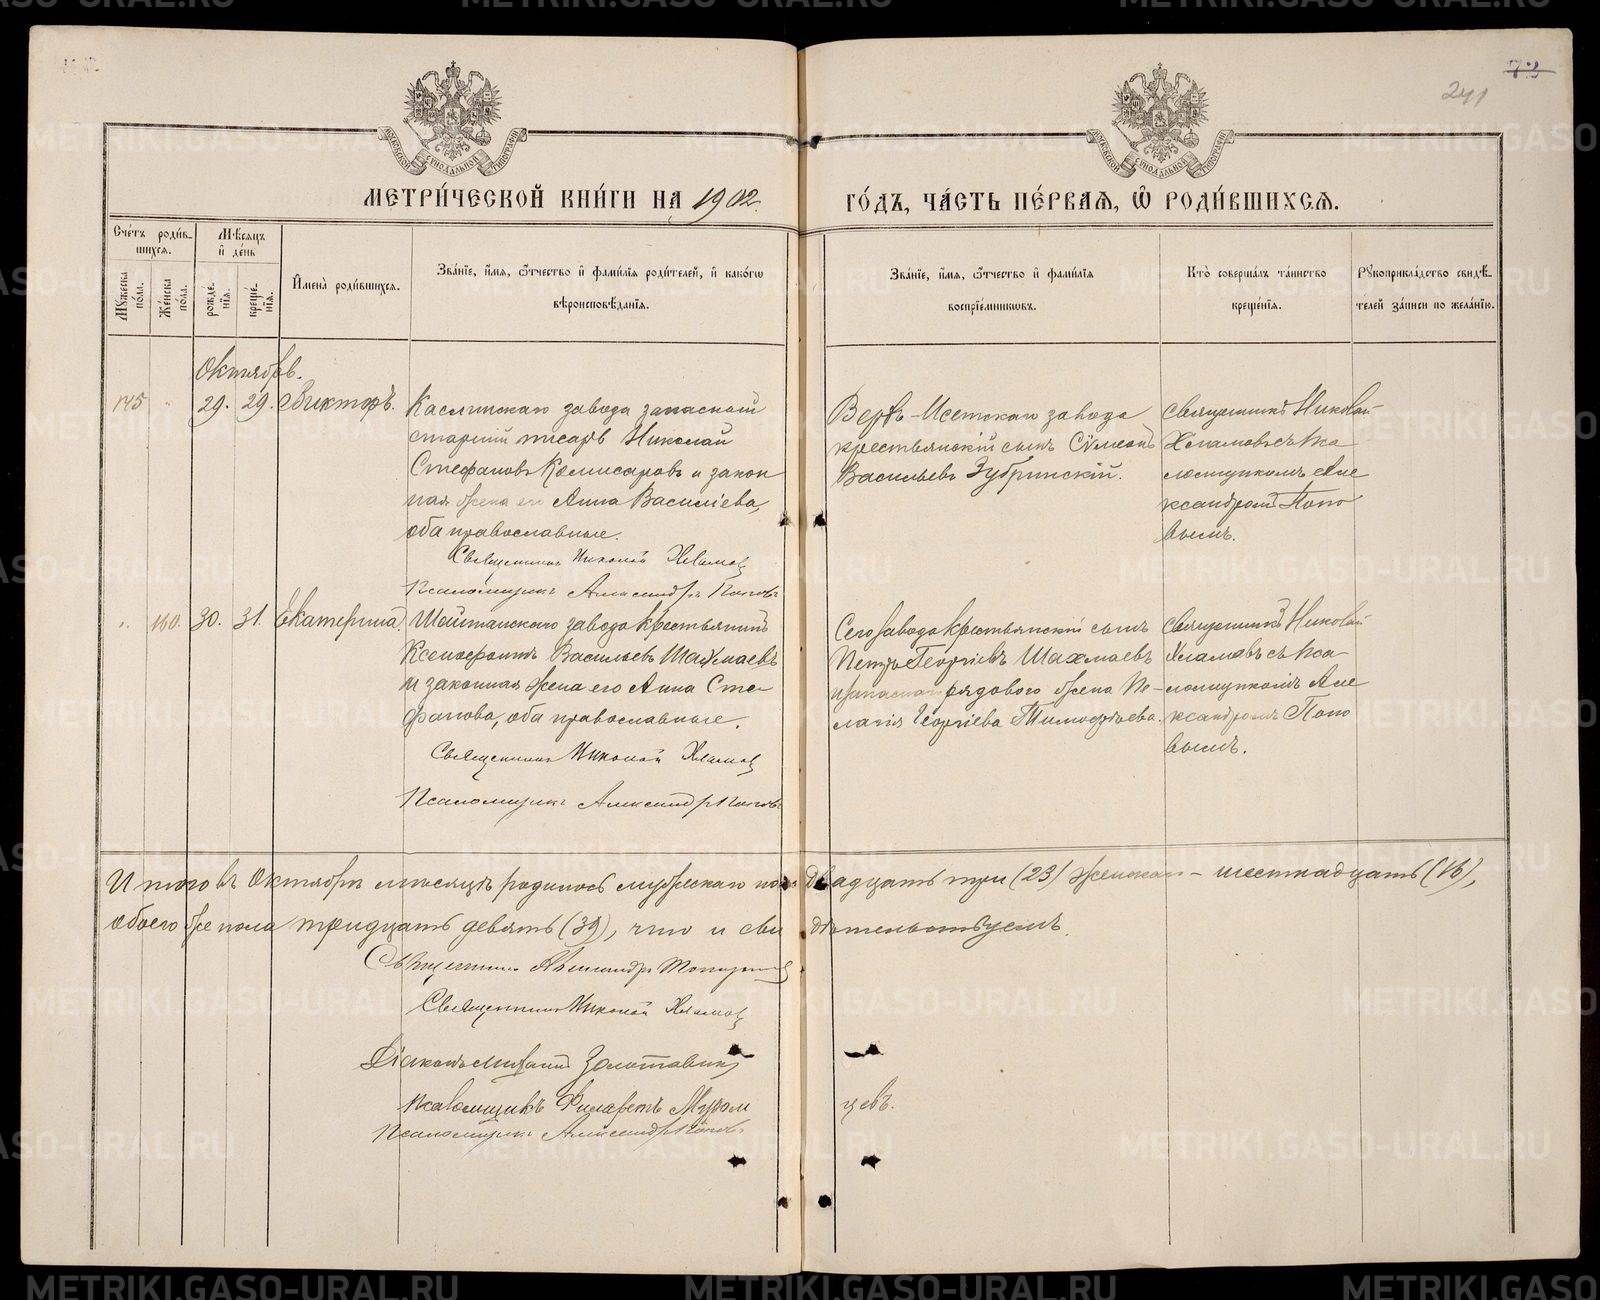 72
241
МОСКОВСКОЙ СѴНОДАЛЬНОЙ ТИПОГРАФІИ
МОСКОВСКОЙ СѴНОДАЛЬНОЙ ТИПОГРАФІИ
МЕТРИ́ЧЕСКОЙ КНИ́ГИ НА 1902 ГО́ДЪ, ЧА́СТЬ ПЕ́РВАѦ, Ѡ҆ РОДИ́ВШИХСѦ.
Сче́тъ роди́в-
шихсѧ.
Мѣ́сѧцъ
и҆ де́нь
Мꙋ́жеска
по́ла.
Же́нска
по́ла.
рожде́-
нїѧ.
креще́-
нїѧ.
И҆мена̀ роди́вшихсѧ.
Зва́нїе, и҆́мѧ, ѻ҆́тчество и҆ фами́лїѧ роди́телей, и҆ како́гѡ
вѣроисповѣ́данїѧ.
Зва́нїе, и҆́мѧ, ѻ҆́тчество и҆ фами́лїѧ
воспрїе́мникѡвъ.
Кто̀ соверша́лъ та́инство
креще́нїѧ.
Рꙋкоприкла́дство свидѣ́-
телей за́писи по жела́нїю.
Октябрь.
145 " 29. 29. Викторъ.
Каслинскаго завода запасный
старшій писарь Николай
Стефановъ Комисаровъ и закон
ная жена его Анна Василіева,
оба православные.
Священникъ Николай Хламов
Псаломщикъ Александръ Поповъ
Верхъ-Исетскаго завода
крестьянскій сынъ Сѵмеонъ
Васильевъ Зубринскій.
Священникъ Николай
Хламовъ съ пса
ломщикомъ Але
ксандромъ Попо
вымъ.
" 160. 30. 31. Екатерина.
Шайтанскаго завода крестьянинъ
Ксенофонтъ Васильевъ Шахмаевъ
и законная жена его Анна Сте-
фанова, оба православные.
Священникъ Николай Хламов
Псаломщикъ Александръ Поповъ
Сего завода крестьянскій сынъ
Петръ Георгіевъ Шахмаевъ
и запаснаго рядового жена Пе-
лагія Георгіева Тимофѣева.
Священникъ Николай
Хламовъ съ пса-
ломщикомъ Але
ксандромъ Попо
вымъ.
Итого въ Октябрѣ мѣсяцѣ родилось мужескаго пола двадцать три (23) женскаго - шестнадцать (16),
обоего же пола тридцать девять (39), что и свидѣтельствуемъ.
Священникъ Александръ
Священникъ Николай Хламов
Діаконъ Михаилъ Золотавинъ
Псаломщикъ Филаретъ Муромцевъ.
Псаломщикъ Александръ Поповъ
METRIKI.GASO-URAL.RU